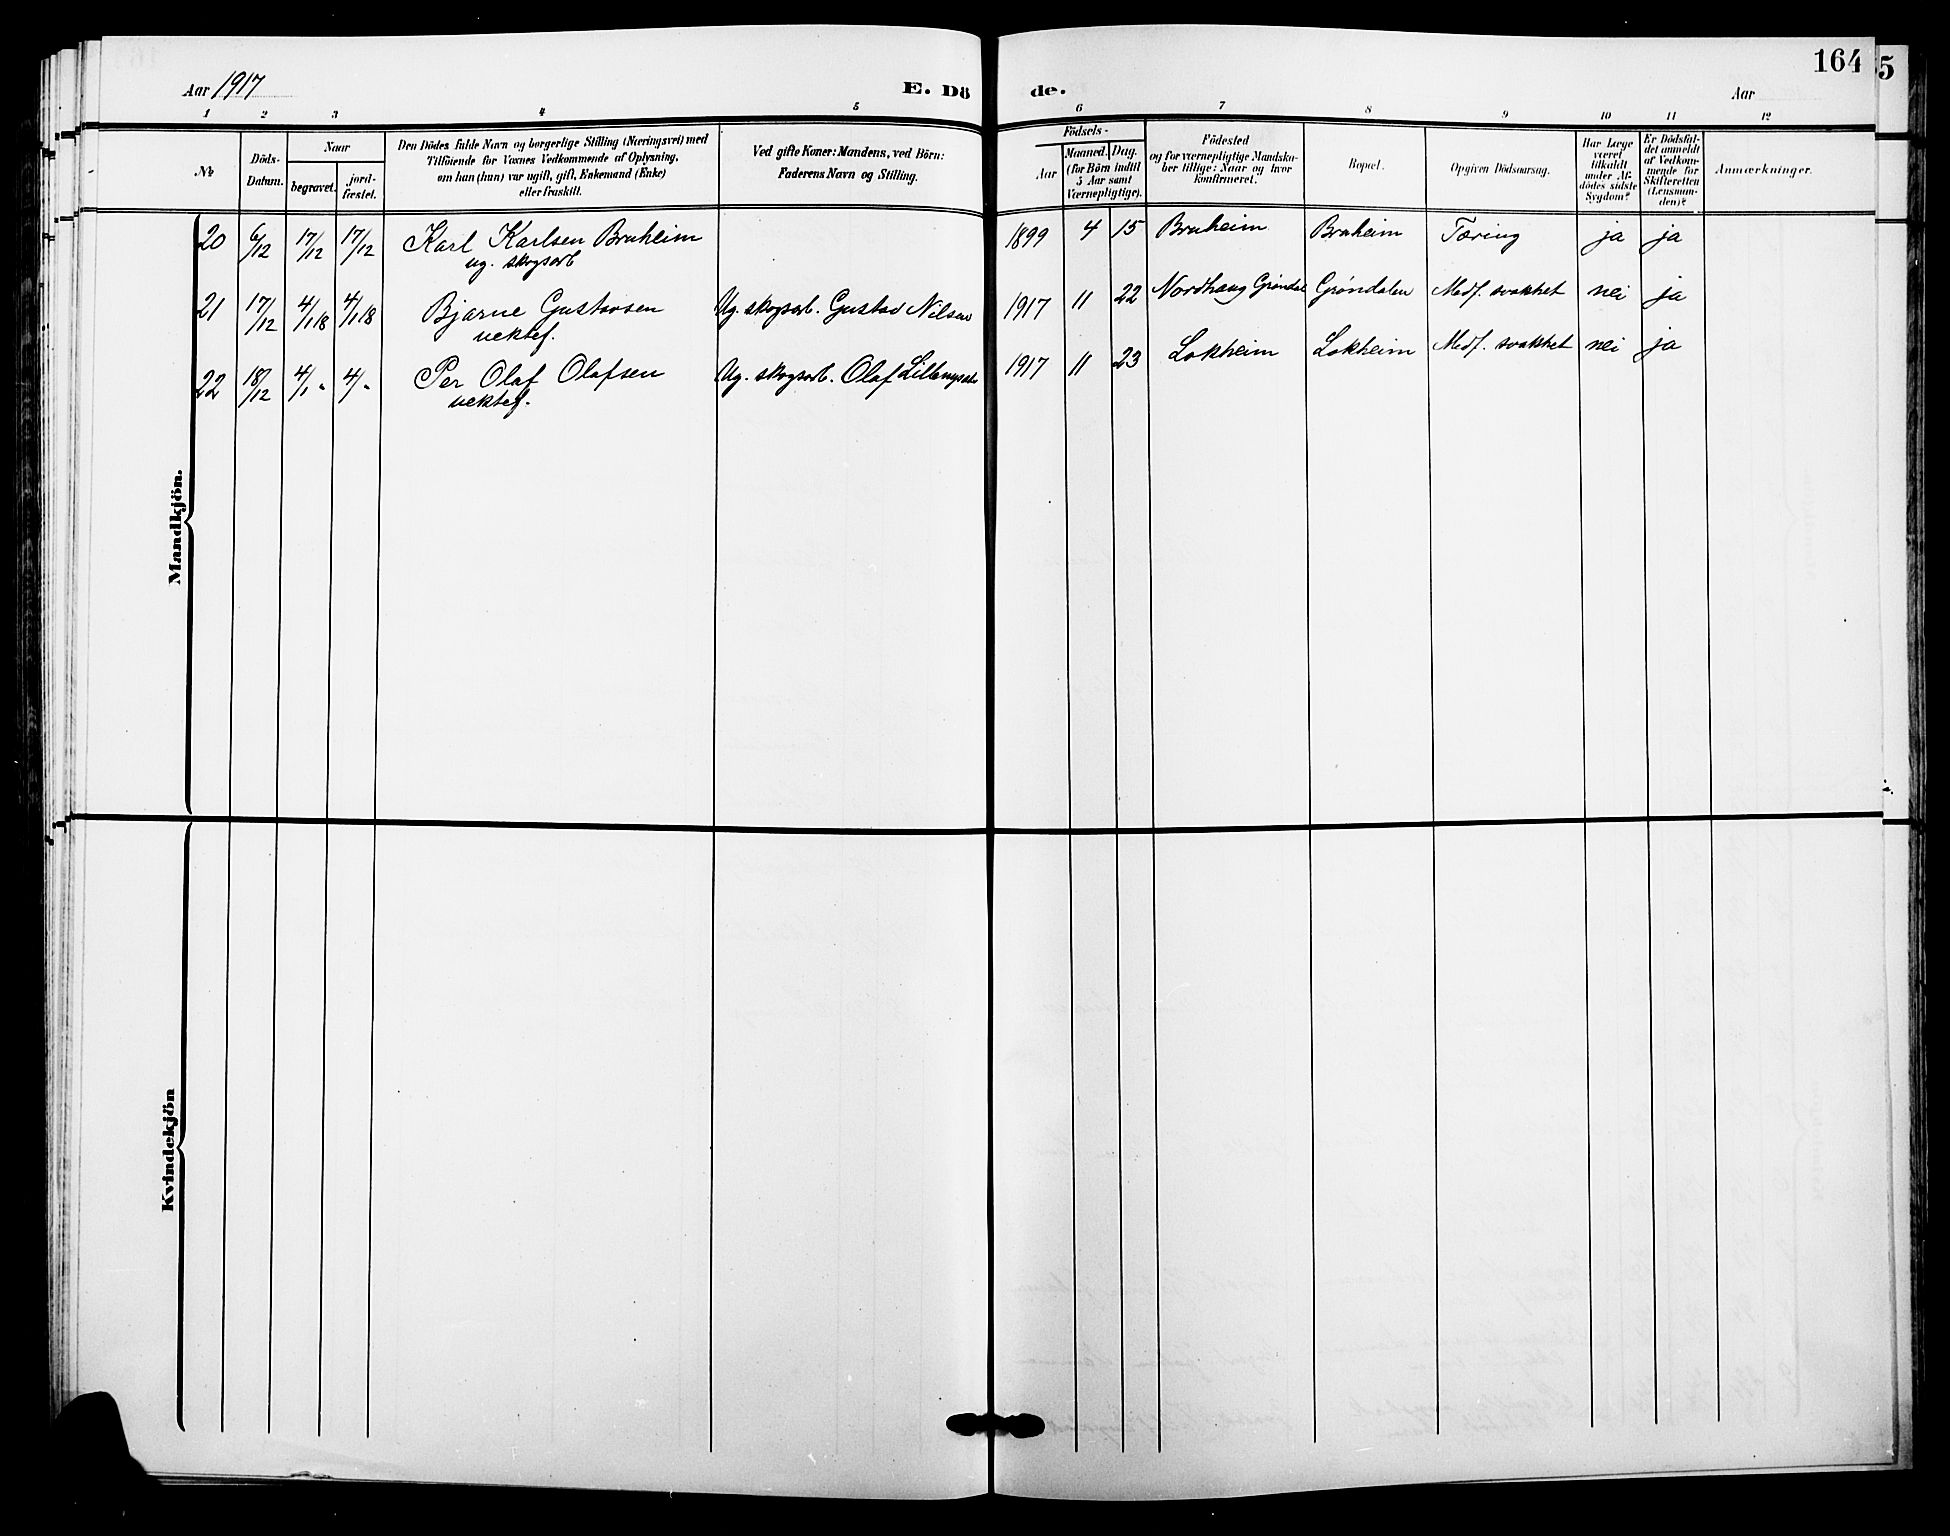 Aar 1917 E. Dö de. Aar 164 5
1 2 3 4 5 6 7 8 9 10 11 12
№
Döds-
Datum.
Naar
begravet.
jord-
fæstet.
Den Dödes fulde Navn og borgerlige Stilling (Næringsvei) med
Tilföiende for Voxnes Vedkommende af Oplysning,
om han (hun) var ugift, gift, Enkemand (Enke)
eller fraskilt.
Ved gifte Koner: Mandens, ved Börn:
Faderens Navn og Stilling.
Födsels-
Aar
Maaned. Dag.
(for Börn indtil
5 Aar samt
Værnepligtige).
Födested
og for værnepligtige Mandska-
ber tillige: Naar og hvor
konfirmeret.
Bopæl.
Opgiven Dödsaarsag.
Har Læge
været
tilkaldt
under Af-
dödes sidste
Sygdom?
Er Dödsfal-
det anmeldt
af Vedkom-
mende for
Skifteretten
(Lensman-
den)?
Anmærkninger.
20 6/12 17/12 17/12 Karl Karlsen Bruheim 1899 4 15 Bruheim Bruheim Tæring ja ja
ug. skogsarb
21 17/12 4/1 18 4/1 18 Bjarne Gustavsen Ug. skogsarb. Gustav Nilsen 1917 11 22 Nordhaug Grøndal Grøndalen Medf. svakhet nei ja
uektef.
22 18/12 4/1 " 4/ " Per Olaf Olafsen Ug. skogsarb. Olaf 1917 11 23 Lokheim Lokheim Medf. svakhet nei ja
uektef.
Mandkjön.
Kvindekjön